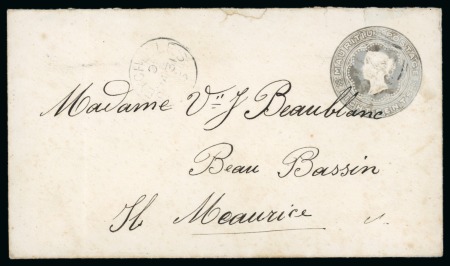 MAURITIUS POSTAGE
Madame Vve J Beaublanc
Beau Bassin
Il Meaurice